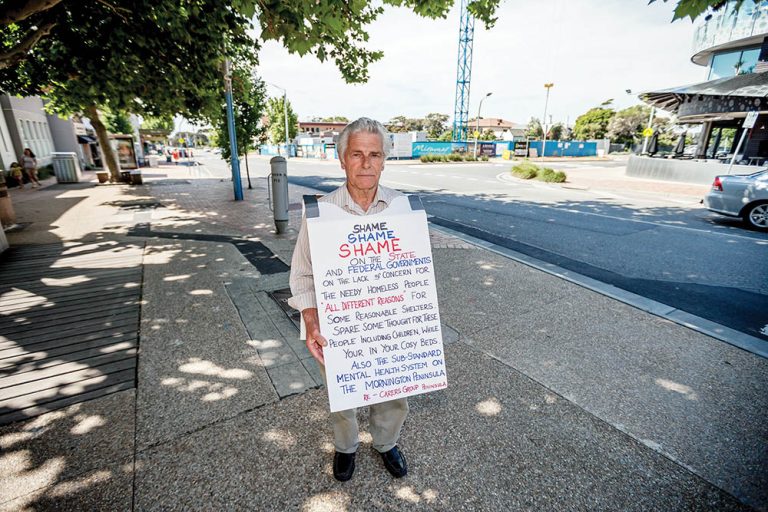 SHAME
SHAME
SHAME
ON THE STATE
AND FEDERAL GOVERNMENTS
ON THE LACK OF CONCERN FOR
THE NEEDY HOMELESS PEOPLE
"ALL DIFFERENT REASONS" FOR
SOME REASONABLE SHELTERS
SPARE SOME THOUGHT FOR THESE
PEOPLE INCLUDING CHILDREN, WHILE
YOUR IN YOUR COSY BEDS
ALSO THE SUB-STANDARD
MENTAL HEALTH SYSTEM ON
THE MORNINGTON PENINSULA
RE - CARERS GROUP PENINSULA